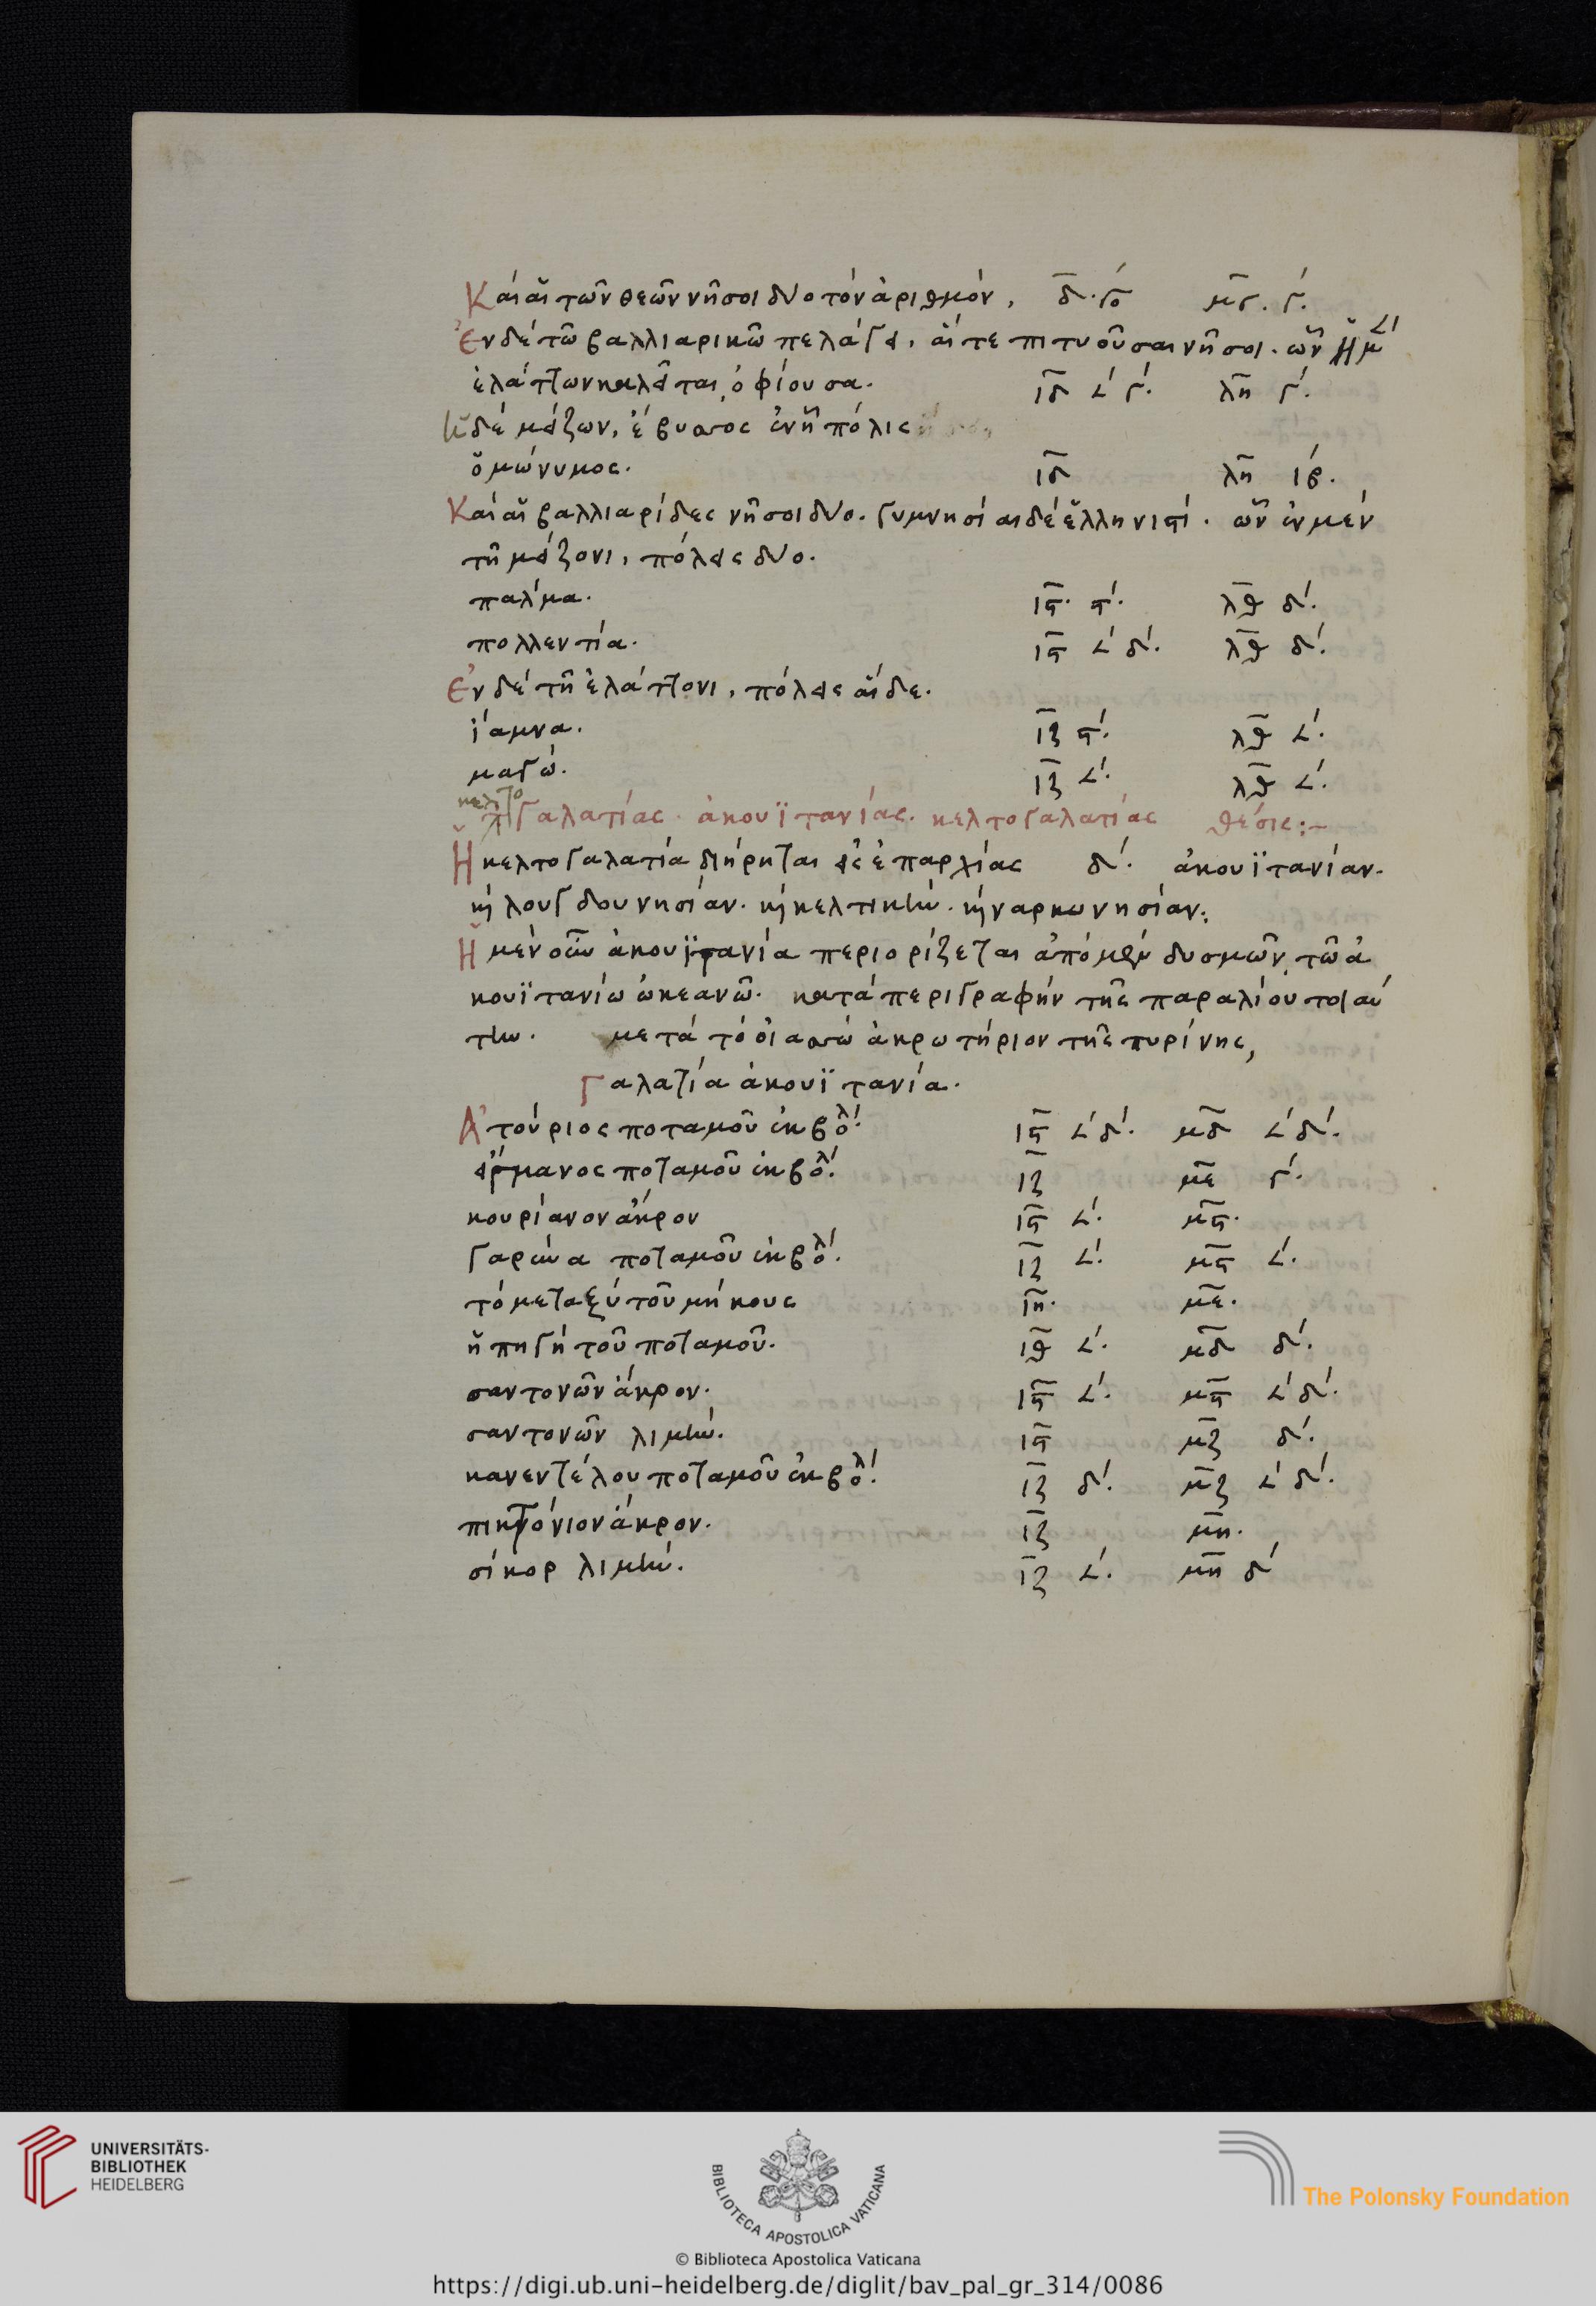 Καὶ αἱ τῶν θεῶν νῆσοι δύο τὸν ἀριθμόν. δ̅. γό μ̅γ. γ́.
Ἐν δὲ τῶ βαλλιαρικῶ πελάγει. αἵ τε πιτυοῦσαι νῆσοι. ὧν ἡ μὲν
ἐλάττων καλεῖται, ὀφίουσα. ι̅δ ∠́ γ́. λ̅η γ́.
ἡ δὲ μείζων, ἔβυσσος ἐν ἧ πόλις
ὁμώνυμος. ι̅δ λ̅η ιβ́.
Καὶ αἱ βαλλιαρίδες νῆσοι δύο. γυμνησίαι δὲ ἑλληνιστί. ὧν ἐν μὲν
τῆ μείζονι, πόλεις δύο.
παλμα. ι̅ϛ. ϛ́. λ̅θ δ́.
πολλεντία. ι̅ϛ ∠́ δ́. λ̅θ δ́.
Ἐν δὲ τῆ ἐλάττονι, πόλεις αἵδε.
ϊάμνα. ι̅ζ ϛ́. λ̅θ ∠́.
μαγώ. ι̅ζ ∠́. λ̅θ ∠́.
κελτο
γαλατίας. ἀκουϊτανίας. κελτογαλατίας θέσις:–
Ἡ κελτογαλατία διήρηται εἰς ἐπαρχίας δ́. ἀκουϊτανίαν.
κὶ λουγδουνησίαν. κὶ κελτικὴν. κὶ ναρκωνησίαν:
Ἡ μὲν οὖν ἀκουϊτανία περιορίζεται ἀπὸ μὲν δυσμῶν, τῶ ἀ
κουϊτανίω ὠκεανῶ. κατὰ περιγραφὴν τῆς παραλίου τοιαύ
την. μετὰ τὸ οἰασσὼ ἀκρωτήριον τῆς πυρίνης,
Γαλατία ἀκουϊτανία.
Ἀτούριος ποταμοῦ ἐκβολ́. ι̅ϛ ∠́ δ́. μ̅δ ∠́ δ́.
σίγμανος ποταμοῦ ἐκβολ́. ι̅ζ μ̅ε γ́.
κουρίανον ἄκρον ι̅ϛ ∠́. μ̅ϛ.
γαρύνα ποταμοῦ ἐκβολ́. ι̅ζ ∠́. μ̅ϛ ∠́.
τὸ μεταξὺ τοῦ μήκους ι̅η. μ̅ε.
ἡ πηγὴ τοῦ ποταμοῦ. ι̅θ ∠́. μ̅δ δ́.
σαντονῶν ἄκρον. ι̅ϛ ∠́. μ̅ϛ ∠́ δ́.
σαντονῶν λιμήν. ι̅ϛ μ̅ζ δ́.
κανεντέλου ποταμοῦ ἐκβολ́. ι̅ζ δ́. μ̅ζ ∠́ δ́.
πικτόνιον ἄκρον. ι̅ζ μ̅η.
σίκορ λιμήν. ι̅ζ ∠́. μ̅η δ́
UNIVERSITÄTS-
BIBLIOTHEK
HEIDELBERG
BIBLIOTECA APOSTOLICA VATICANA
The Polonsky Foundation
© Biblioteca Apostolica Vaticana
https://digi.ub.uni-heidelberg.de/diglit/bav_pal_gr_314/0086